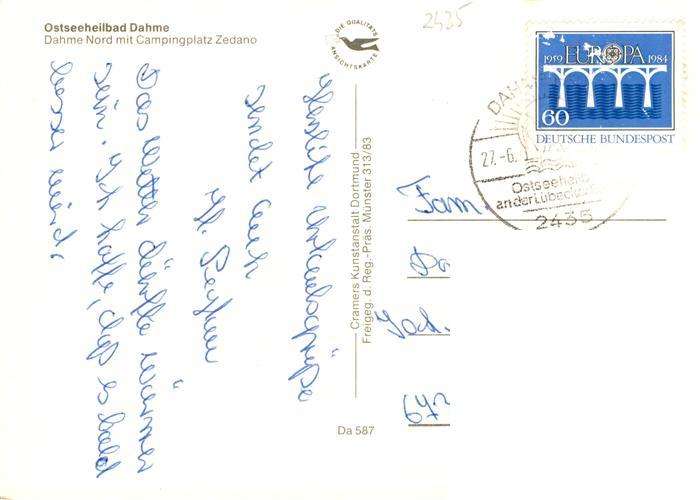 Ostseeheilbad Dahme
Dahme Nord mit Campingplatz Zedano
DIE QUALITÄTS
ANSICHTSKARTE
2435
1959 EUROPA 1984
60
DEUTSCHE BUNDESPOST
DAHM
27.-6.
Ostseeheilb
an der Lübecker
2435
Herzliche Urlaubsgrüße
sendet euch
Das Wetter dürfte wärmer
sein. Ich hoffe, daß es bald
besser wird.
Cramers Kunstanstalt Dortmund
Freigeg. d. Reg.-Präs. Münster 313/83
Da 587
Fam